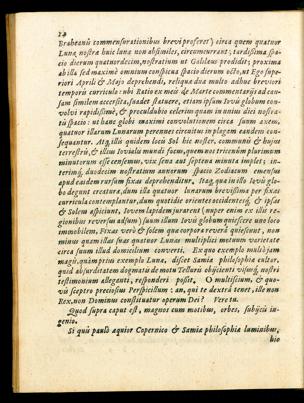 Braheanis commensurationibus brevi proferet) circa quem quatuor
Lunæ, nostræ huic lunæ non absimiles, circumcurrant: tardissima spa-
cio dierum quatuordecim, nostratium ut Galilæus prodidit; proxima
ab illa sed maximè omnium conspicua spacio dierum octo, ut Ego supe-
riori Aprili & Majo deprehendi, reliquæ duæ multo adhuc breviori
temporis curriculo: ubi Ratio ex meis de Marte commentarijs ad cau-
sam similem accersita, suadet statuere, etiam ipsum Iovis globum con-
volvi rapidissimè, & proculdubio celerius quam in unius diei nostra-
tis spacio: ut hanc globi maximi convolutionem circa suum axem,
quatuor illarum Lunarum perennes circuitus in plagam eandem con-
sequantur. Atq, illis quidem locis Sol hic noster, communis & hujus
terrestris, & illius Iovialis mundi focus, quem nos tricenûm plurimum
minutorum esse censemus, vix sena aut septena minuta implet; in-
terimq́, duodecim nostratium annorum spacio Zodiacum emensus
apud easdem rursum fixas deprehenditur. Itaq, quæ in illo Iovis glo-
bo degunt creaturæ, dum illa quatuor lunarum brevissima per fixas
curricula contemplantur, dum quotidie orientes occidentesq́, & ipsas
& Solem aspiciunt, Iovem lapidem jurarent (nuper enim ex illis re-
gionibus reversus adsum) suum illum Iovis globum quiescere uno loco
immobilem, Fixas verò & Solem quæ corpora reverâ quiescunt, non
minus quam illas suas quatuor Lunas multiplici motuum varietate
circa suum illud domicilium converti. Ex quo exemplo multò jam
magis, quàm prius exemplo Lunæ, discet Samiæ philosophiæ cultor,
quid absurditatem dogmatis de motu Telluris objicienti visusq́, nostri
testimonium alleganti, responderi possit. O multiscium, & quo-
vis sceptro preciosius Perspicillum: an, qui te dextrâ tenet, ille non
Rex, non Dominus constituatur operum Dei? Vere tu.
Quod supra caput est, magnos cum motibus, orbes, subijcis in-
genio.
Si quis paulò æquior Copernico & Samiæ philosophiæ luminibus,
hic